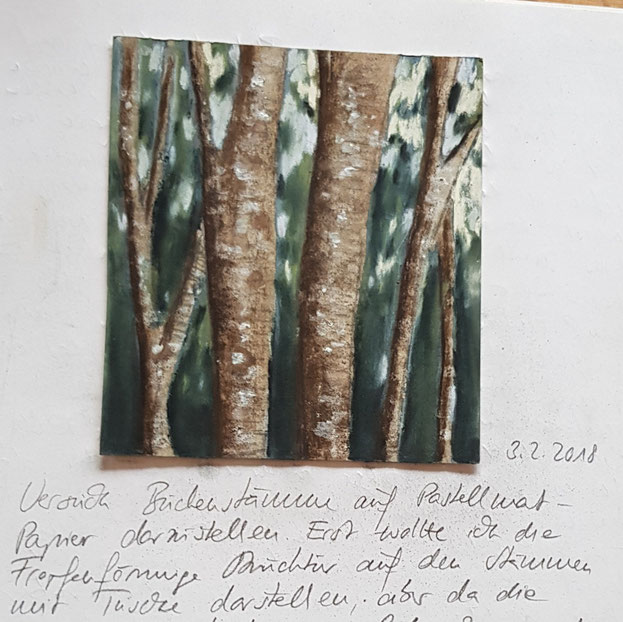 3.2.2018
Versuch Buchenstämme auf Pastellmat-
Papier darzustellen. Erst wollte ich die
Tropfenförmige Struktur auf den Stämmen
mit Tusche darstellen, aber da die